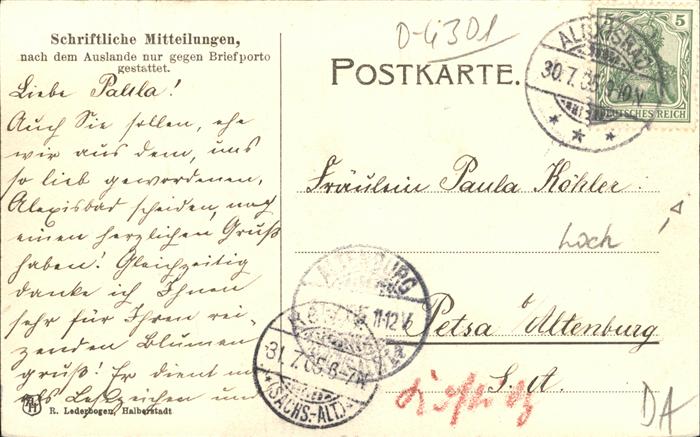 Schriftliche Mitteilungen,
nach dem Auslande nur gegen Briefporto
gestattet.
Liebe Paula!
Auch Sie sollen, ehe
wir aus dem, uns
so lieb gewordenen,
Alexisbad scheiden, noch
einen herzlichen Gruß
haben! Gleichzeitig
danke ich Ihnen
sehr für Ihren rei-
zenden Blumen
gruß! Er dient mir
als Lesezeichen und
R. Lederbogen, Halberstadt
D-4301
POSTKARTE.
5
DEUTSCHES REICH
ALEXISBAD
30.7.05
Fräulein Paula Köhler
Loch
Petsa b/Altenburg
S. A.
ALTENBURG
11-12V
31.7.05 6-7
(SACHS.-ALT.)
DA